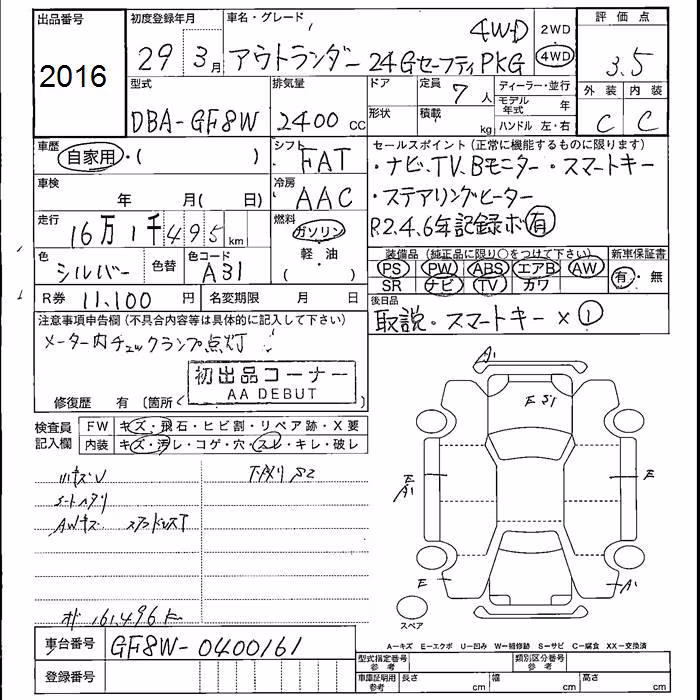 出品番号
2016
初度登録年月
29 3月
車名・グレード
アウトランダー 24GセーフティPKG
4WD
2WD
4WD
評価点
3.5
外装 内装
C C
型式
DBA-GF8W
排気量
2400 cc
ドア
形状
定員
7人
積載
kg
ディーラー・並行
モデル年式 年
ハンドル 左・右
車歴
自家用・( )
シフト
FAT
セールスポイント(正常に機能するものに限ります)
・ナビ、TV、Bモニター・スマートキー
・ステアリングヒーター
R2.4.6年記録ボ有
車検
年 月( 日)
冷房
AAC
走行
16万1千495km
燃料
ガソリン
軽・油
( )
色
シルバー
色替
色コード
A31
装備品(純正品に限り○をつけて下さい)
PS PW ABS エアB AW
SR ナビ TV カワ
新車保証書
有・無
R券 11,100円
名変期限 月 日
後日品
取説・スマートキー×①
注意事項申告欄(不具合内容等は具体的に記入して下さい)
メーター内チェックランプ点灯
初出品コーナー
AA DEBUT
修復歴 有〔箇所〈
検査員記入欄
FW キズ・飛石・ヒビ割・リペア跡・X要
内装 キズ・汚レ・コゲ・穴・スレ・キレ・破レ
ハキズV
シートヘタリ
AWキズ
下廻り S2
161,496
A1
E S1
E
A1
E
E
A1
スペア
A-キズ E-エクボ U-凹み W-補修跡 S-サビ C-腐食 XX-交換済
車台番号
GF8W-0400161
登録番号
型式指定番号 参考
類別区分番号 参考
車庫証明用 参考
長さ cm
幅 cm
高さ cm